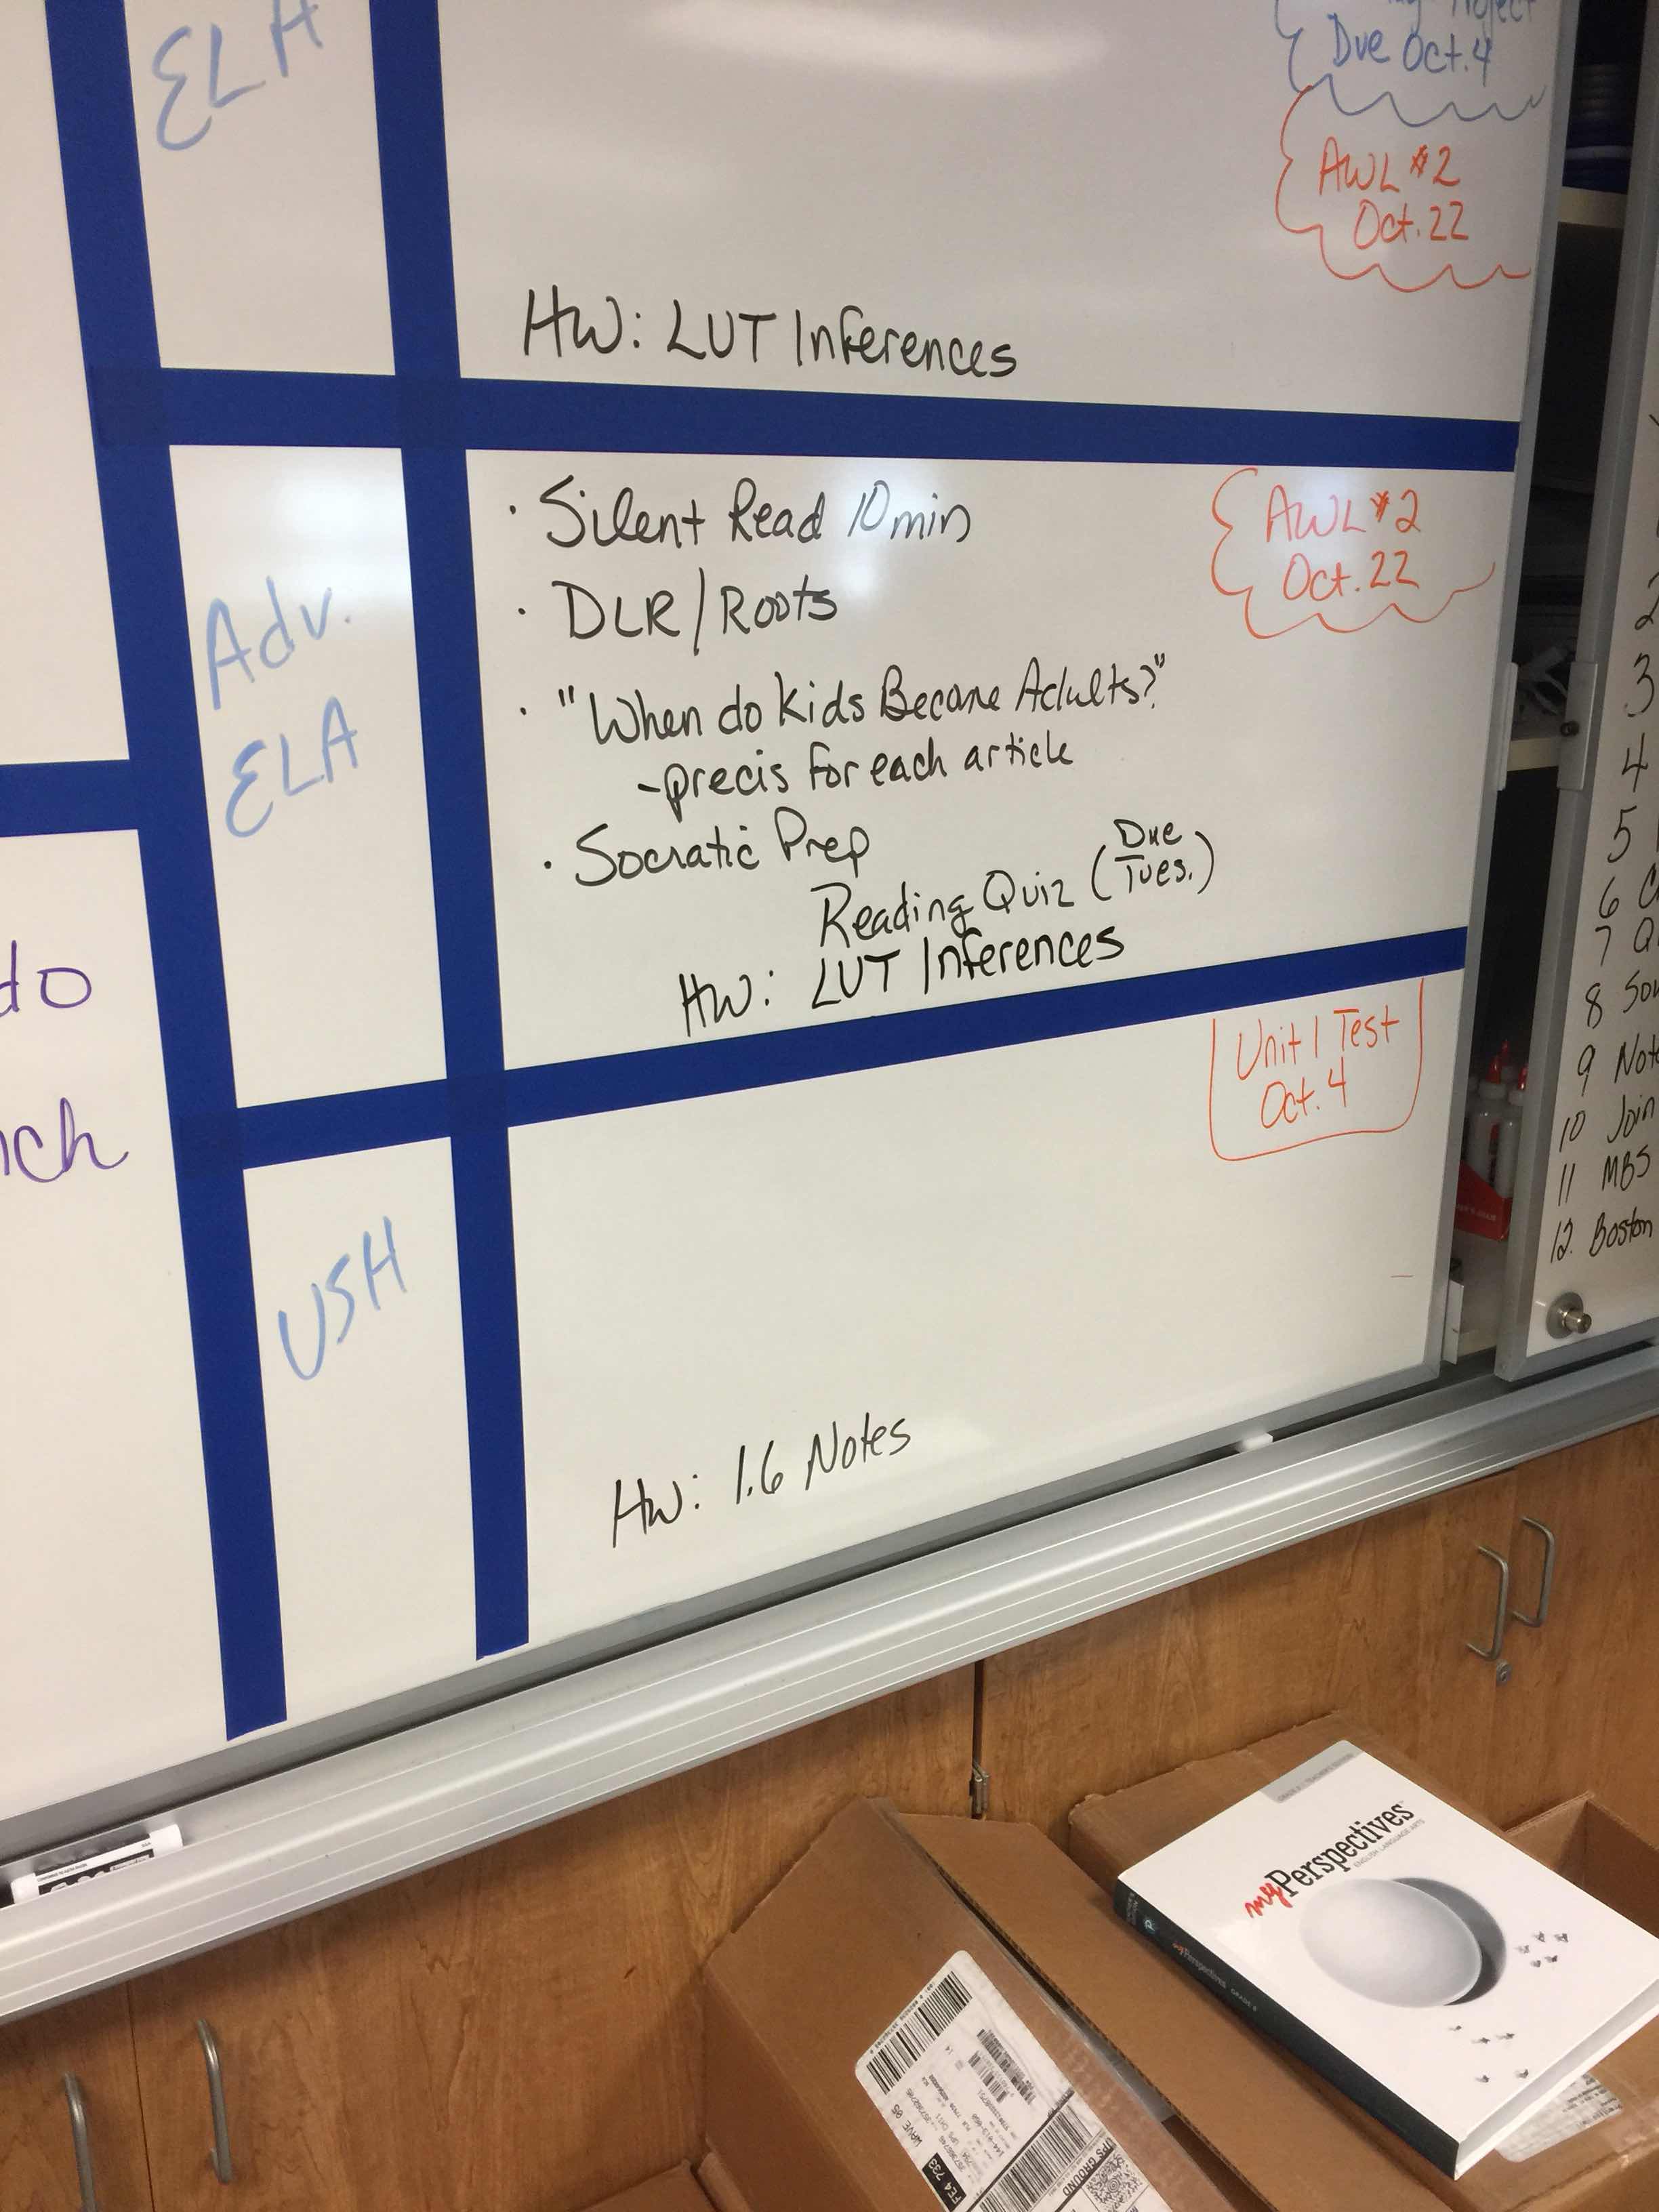 ELA
Due Oct. 4
AWL #2
Oct. 22
HW: LUT Inferences
Adv.
ELA
· Silent Read 10 min
· DLR/Roots
· "When do Kids Become Adults?"
-precis for each article
· Socratic Prep
Reading Quiz (Due Tues.)
HW: LUT Inferences
AWL #2
Oct. 22
USH
Unit 1 Test
Oct. 4
HW: 1.6 Notes
do
3
4
5
6
7
8
9
10 Join
11 MBS
12. Boston
myPerspectives
ENGLISH LANGUAGE ARTS
myPerspectives GRADE 8
WAVE 05
FE4 733
UPS GROUND